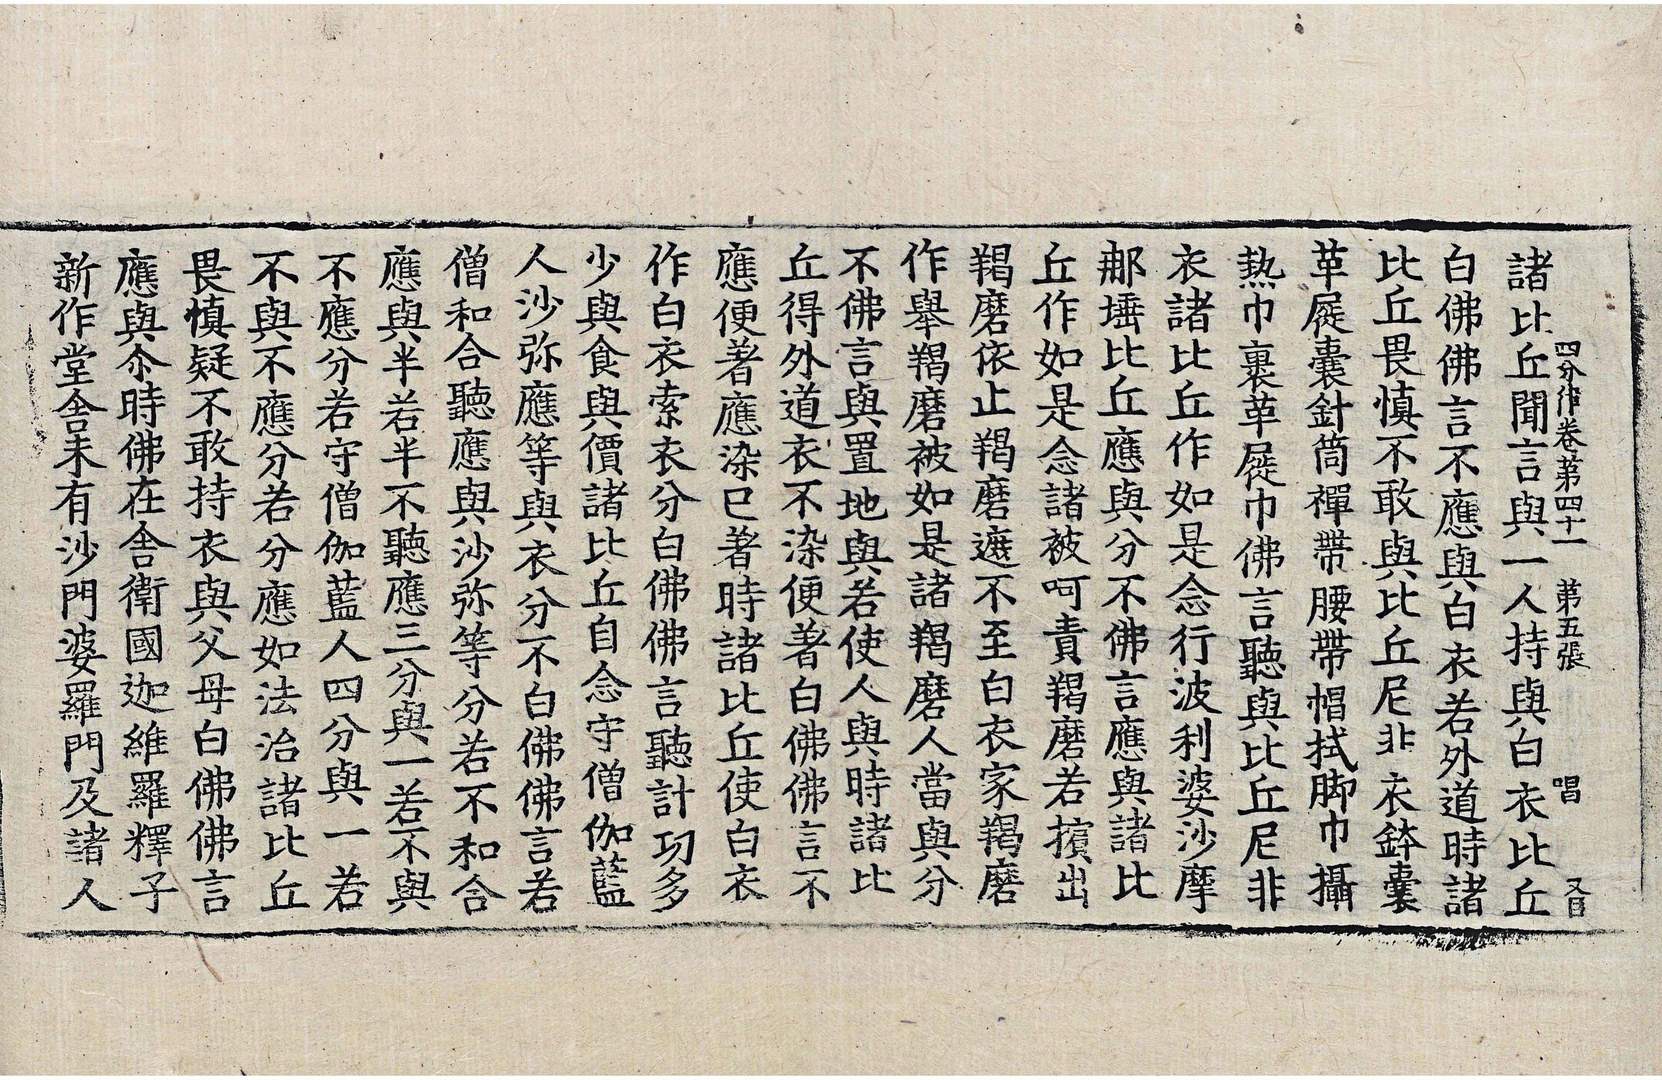 四分律卷第四十一　第五張　唱　又目
諸比丘聞言與一人持與白衣比丘
白佛佛言不應與白衣若外道時諸
比丘畏慎不敢與比丘尼非衣鉢囊
革屣囊針筒禪帶腰帶帽拭脚巾攝
熱巾裹革屣巾佛言聽與比丘尼非
衣諸比丘作如是念行波利婆沙摩
那埵比丘應與分不佛言應與諸比
丘作如是念諸被呵責羯磨若擯出
羯磨依止羯磨遮不至白衣家羯磨
作舉羯磨被如是諸羯磨人當與分
不佛言與置地與若使人與時諸比
丘得外道衣不染便著白佛佛言不
應便著應染已著時諸比丘使白衣
作白衣索衣分白佛佛言聽計功多
少與食與價諸比丘自念守僧伽藍
人沙弥應等與衣分不白佛佛言若
僧和合聽應與沙弥等分若不和合
應與半若半不聽應三分與一若不與
不應分若守僧伽藍人四分與一若
不與不應分若分應如法治諸比丘
畏慎疑不敢持衣與父母白佛佛言
應與尒時佛在舍衛國迦維羅釋子
新作堂舍未有沙門婆羅門及諸人